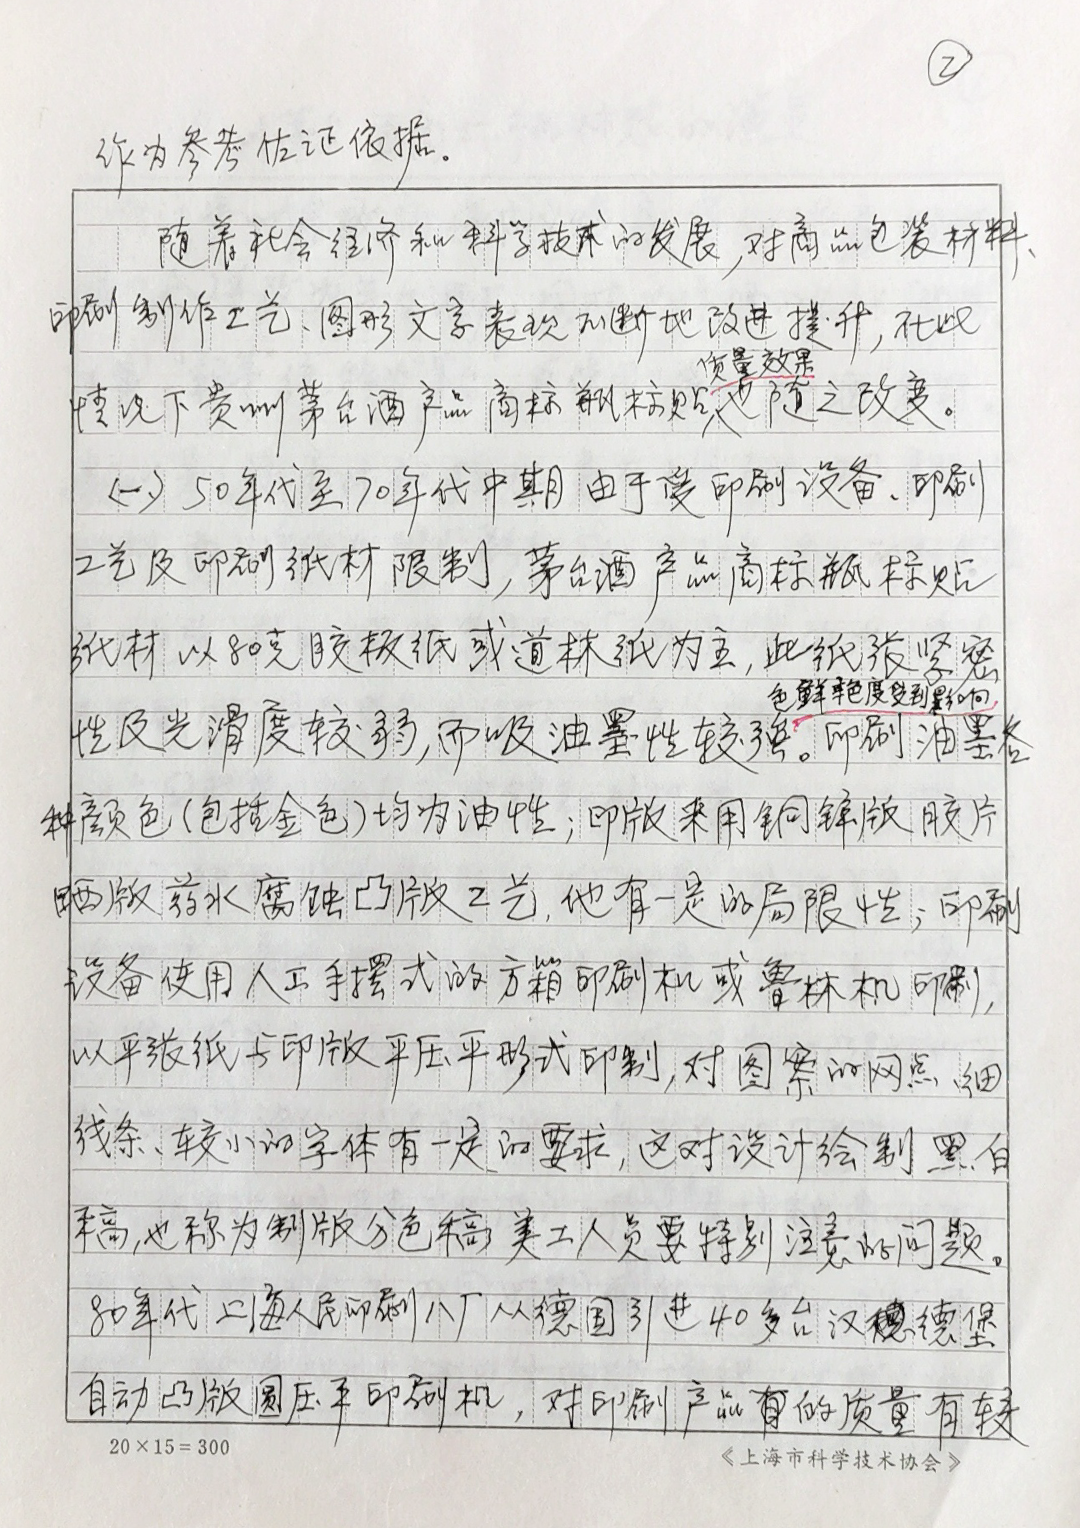 2
作为参考佐证依据。
随着社会经济和科学技术的发展,对商品包装材料、
印刷制作工艺、图形文字表现不断地改进提升,在此
质量效果
情况下贵州茅台酒产品商标瓶标贴也随之改变。
(一)50年代至70年代中期由于受印刷设备、印刷
工艺及印刷纸材限制,茅台酒产品商标瓶标贴
纸材以80克胶板纸或道林纸为主,此纸张紧密
色鲜率色度受到影响
性及光滑度较弱,而吸油墨性较强。印刷油墨各
种颜色(包括金色)均为油性;印版来用铜锌版胶片
晒版药水腐蚀凸版工艺,他有一定的局限性;印刷
设备使用人工手摆式的方箱印刷机或鲁林机印制,
以平张纸与印版平压平形式印制,对图案的网点、细
线条、较小的字体有一定的要求,这对设计绘制黑白
稿,也称为制版分色稿美工人员要特别注意的问题。
80年代上海人民印刷八厂从德国引进40多台汉德堡
自动凸版圆压平印刷机,对印刷产品的质量有较
20×15=300
《上海市科学技术协会》